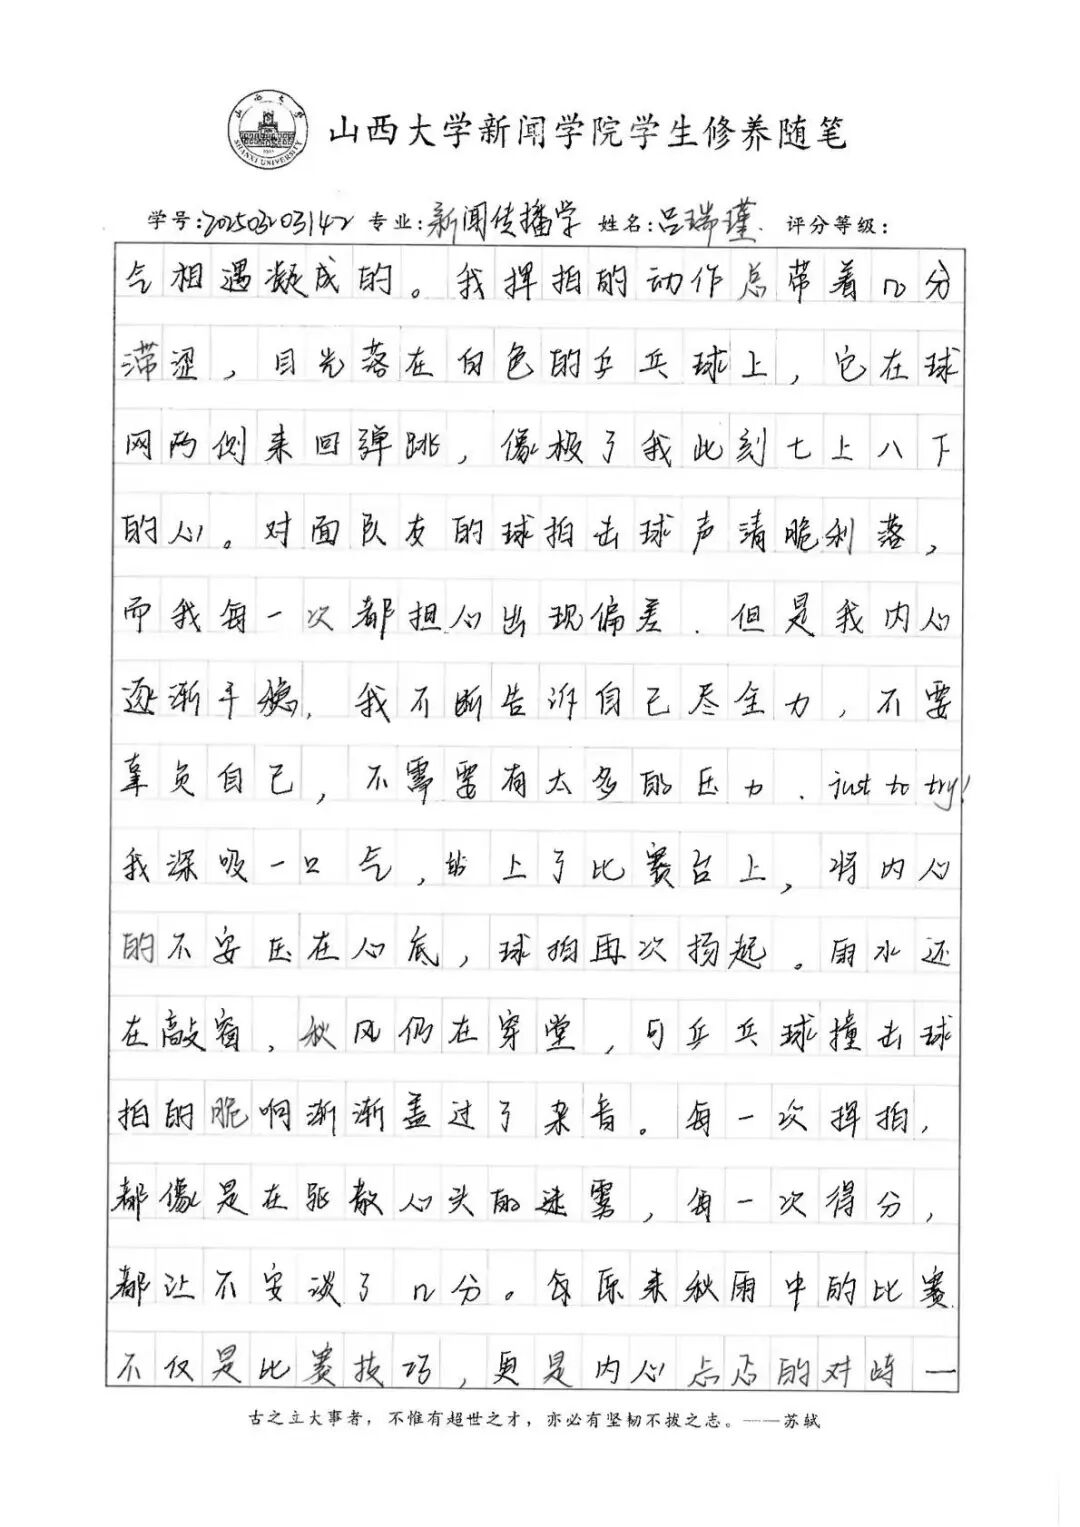 山西大学
SHANXI UNIVERSITY
山西大学新闻学院学生修养随笔
学号:202503203142 专业:新闻传播学 姓名:吕瑞瑾. 评分等级:
气相遇凝成的。我挥拍的动作总带着几分
滞涩，目光落在白色的乒乓球上，它在球
网两侧来回弹跳，像极了我此刻七上八下
的心。对面队友的球拍击球声清脆利落，
而我每一次都担心出现偏差.但是我内心
逐渐平稳.我不断告诉自己尽全力，不要
辜负自己，不需要有太多的压力.just to try!
我深吸一口气,站上了比赛台上，将内心
的不安压在心底，球拍再次扬起。雨水还
在敲窗，秋风仍在穿堂，可乒乓球撞击球
拍的脆响渐渐盖过了杂音。每一次挥拍，
都像是在驱散心头的迷雾，每一次得分，
都让不安淡了几分。原来秋雨中的比赛
不仅是比赛技巧，更是内心忐忑的对峙一
古之立大事者，不惟有超世之才，亦必有坚韧不拔之志。——苏轼